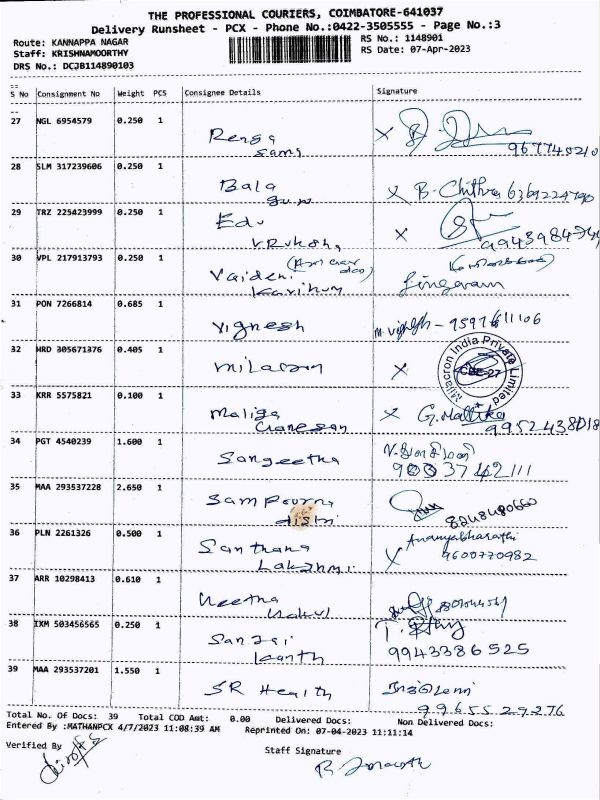 THE PROFESSIONAL COURIERS, COIMBATORE-641037
Delivery Runsheet - PCX - Phone No.:0422-3505555 - Page No.:3
Route: KANNAPPA NAGAR
RS No.: 1148901
Staff: KRISHNAMOORTHY
RS Date: 07-Apr-2023
DRS No.: DCJB114890103
S No Consignment No Weight PCS Consignee Details Signature
27 NGL 6954579 0.250 1
Renga
Sami
28 SLM 317239606 0.250 1
Bala
B. Chithra
29 TRZ 225423999 0.250 1
Edu
Vruksha
30 VPL 217913793 0.250 1
Singaram
31 PON 7266814 0.685 1
Vignesh
32 HRD 305671376 0.405 1
Milacron
Milacron India Private Limited
CBE-27
33 KRR 5575821 0.100 1
Maliga
Ganesan
G. Mallika
34 PGT 4540239 1.600 1
Sangeetha
35 MAA 293537228 2.650 1
Sampoorna
8248480660
36 PLN 2261326 0.500 1
Santhana
Lakshmi
Ananyabharathi
9600770982
37 ARR 10298413 0.610 1
Neetha
Nakul
38 IXM 503456565 0.250 1
Sanjai
Kanth
9943386525
39 MAA 293537201 1.550 1
SR Health
9965529276
Total No. Of Docs: 39 Total COD Amt: 0.00 Delivered Docs: Non Delivered Docs:
Entered By :MATHANPCX 4/7/2023 11:08:39 AM Reprinted On: 07-04-2023 11:11:14
Verified By
Staff Signature